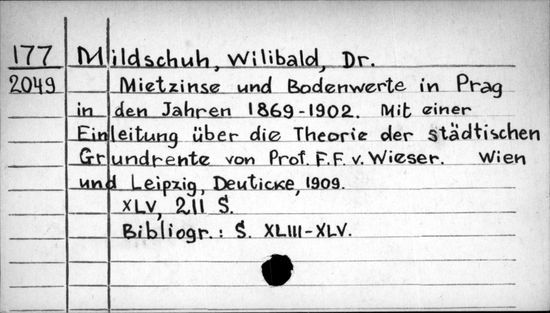 177 Mildschuh, Wilibald, Dr.
2049 Mietzinse und Bodenwerte in Prag
in den Jahren 1869-1902. Mit einer
Einleitung über die Theorie der städtischen
Grundrente von Prof. F. F. v. Wieser. Wien
und Leipzig, Deuticke, 1909.
XLV, 211 S.
Bibliogr.: S. XLIII-XLV.